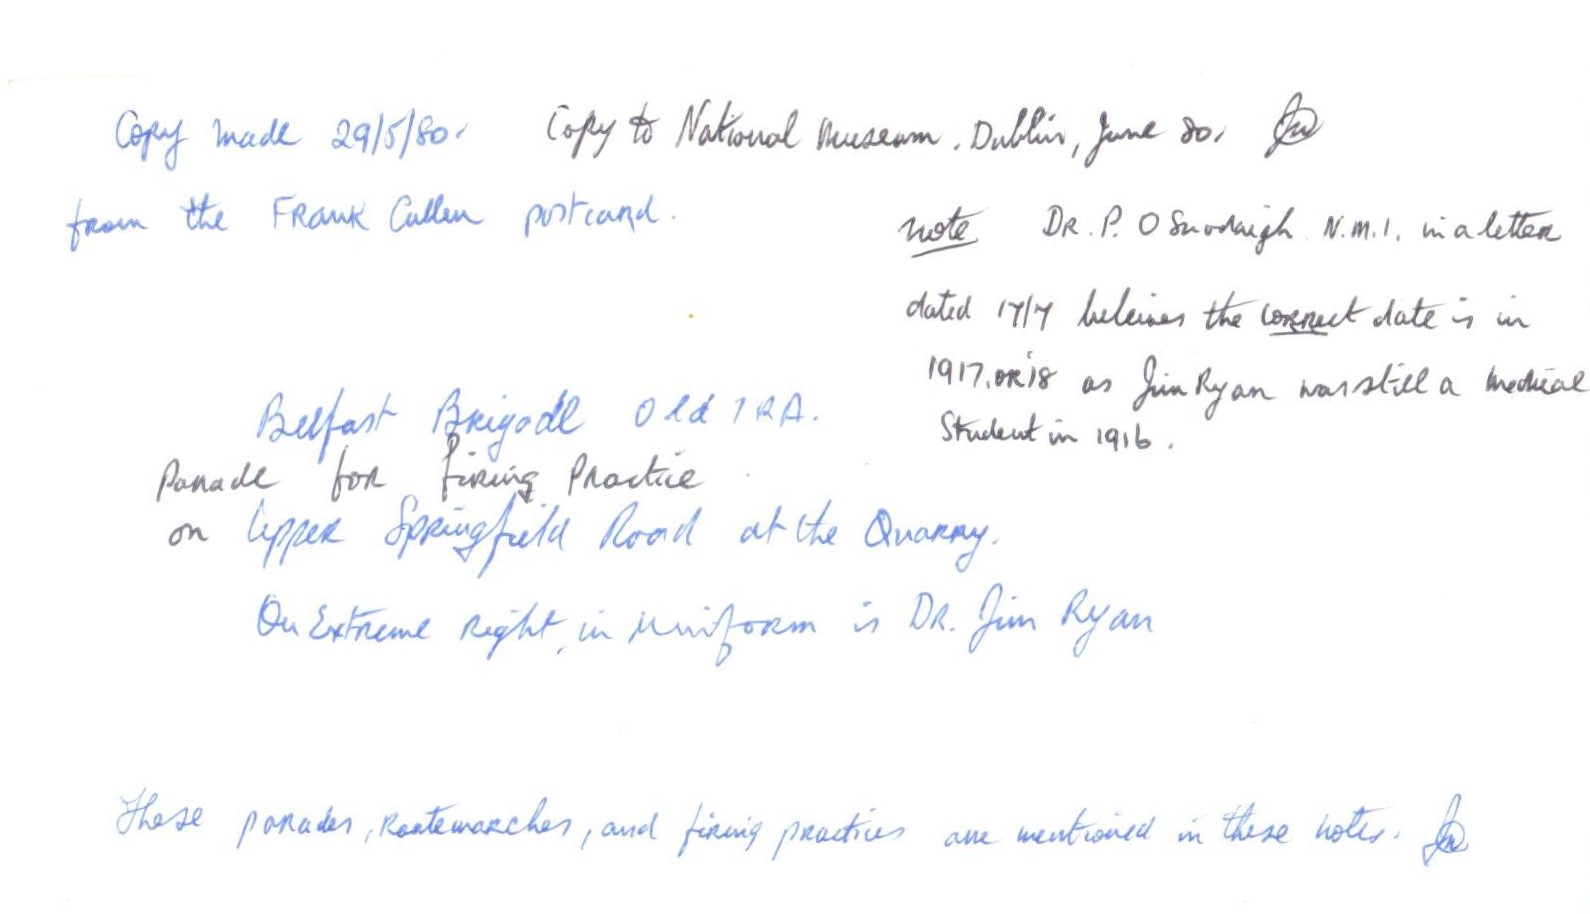 Copy made 29/5/80. Copy to National Museum, Dublin, June 80.
from the FRANK Cullen postcard.
note DR. P. O Snodaigh N.M.I. in a letter
dated 17/7 beleives the correct date is in
1917, OR '18 as Jim Ryan was still a medical
Student in 1916.
Belfast Brigade Old IRA.
Parade for firing Practice
on Upper Springfield Road at the Quarry.
On Extreme Right, in Uniform is DR. Jim Ryan
These parades, Routemarches, and firing practices are mentioned in these notes.